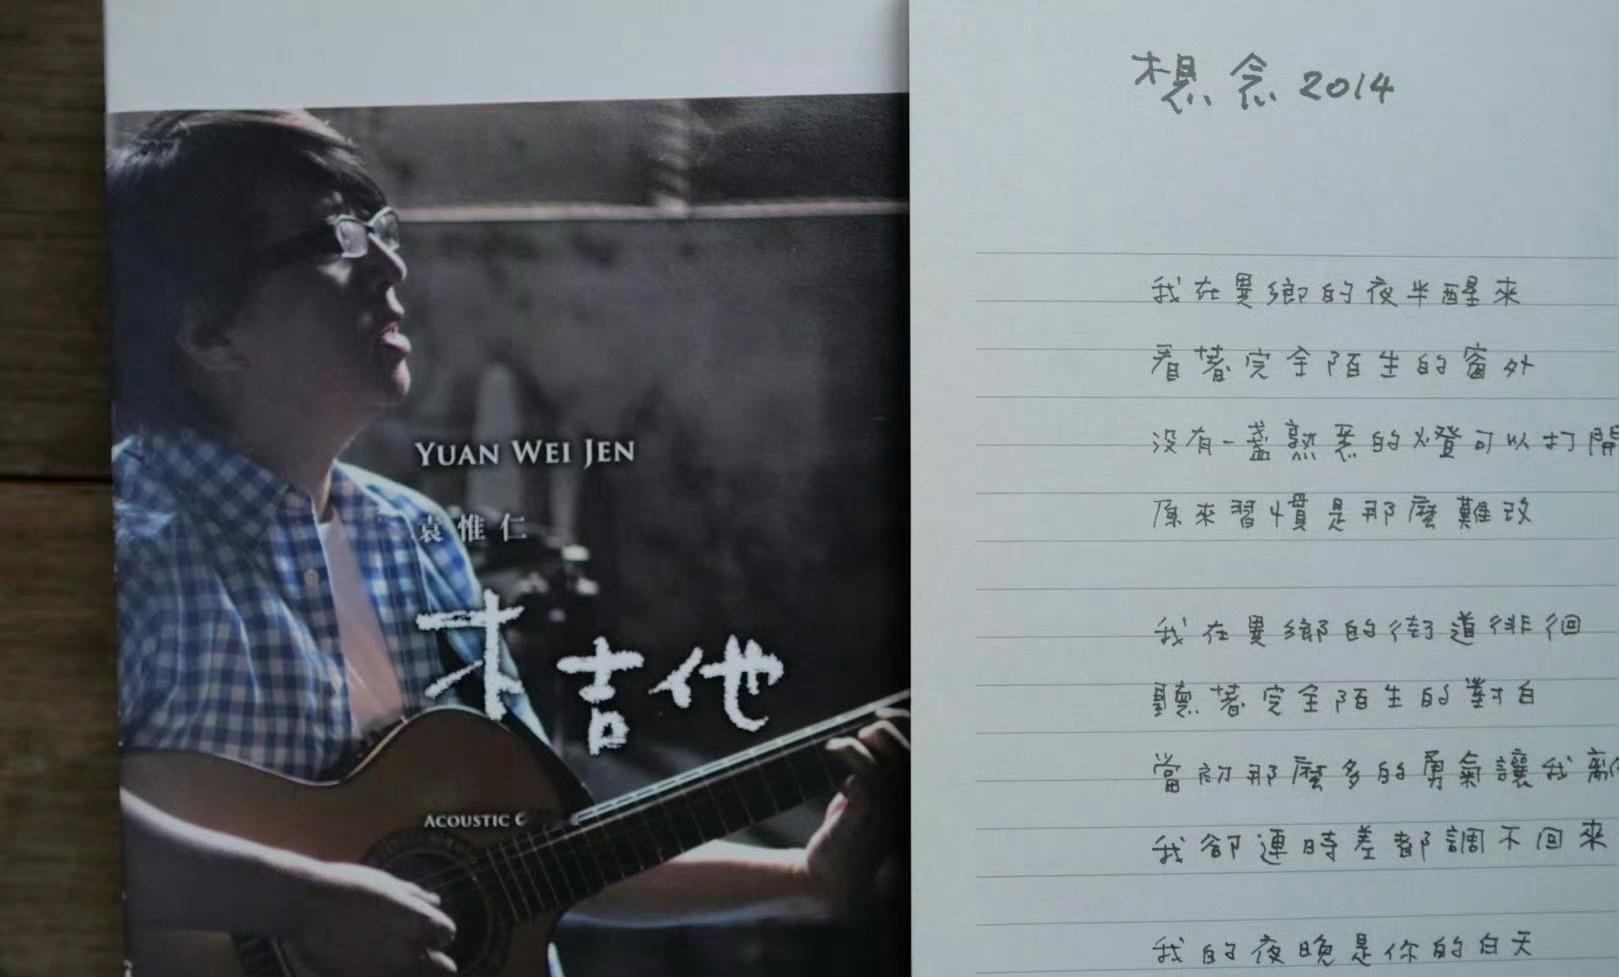 YUAN WEI JEN
袁惟仁
木吉他
ACOUSTIC
想念 2014
我在異鄉的夜半醒來
看著完全陌生的窗外
沒有一盞熟悉的燈可以打開
原來習慣是那麼難改
我在異鄉的街道徘徊
聽著完全陌生的對白
當初那麼多的勇氣讓我離
我卻連時差都調不回來
我的夜晚是你的白天